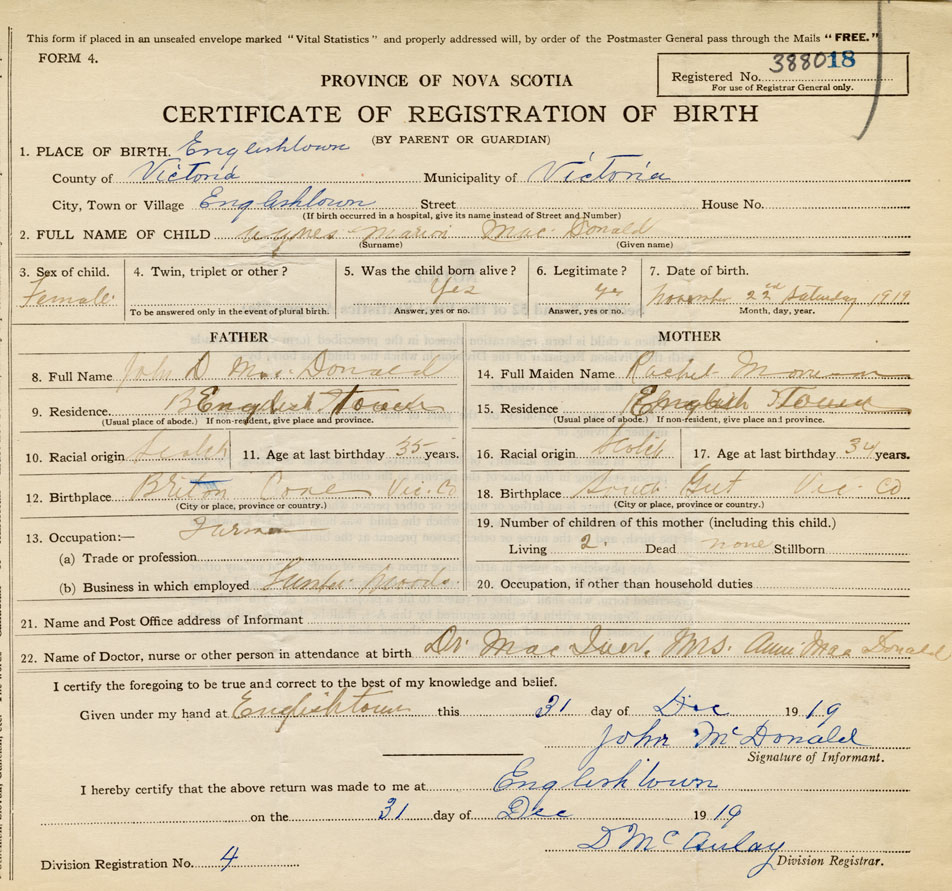 This form if placed in an unsealed envelope marked "Vital Statistics" and properly addressed will, by order of the Postmaster General pass through the Mails "FREE."
FORM 4.
Registered No. 388018
For use of Registrar General only.
PROVINCE OF NOVA SCOTIA
CERTIFICATE OF REGISTRATION OF BIRTH
(BY PARENT OR GUARDIAN)
1. PLACE OF BIRTH. Englishtown
County of Victoria Municipality of Victoria
City, Town or Village Englishtown Street House No.
(If birth occurred in a hospital, give its name instead of Street and Number)
2. FULL NAME OF CHILD Agnes Marion Mac Donald
(Surname) (Given name)
3. Sex of child. 4. Twin, triplet or other? 5. Was the child born alive? 6. Legitimate? 7. Date of birth.
Female Yes yes November 22nd Saturday 1919
To be answered only in the event of plural birth. Answer, yes or no. Answer, yes or no. Month, day, year.
FATHER MOTHER
8. Full Name John D Mac Donald 14. Full Maiden Name Rachel
9. Residence English Town 15. Residence English Town
(Usual place of abode.) If non-resident, give place and province. (Usual place of abode.) If non-resident, give place and province.
10. Racial origin Scotch 11. Age at last birthday 35 years. 16. Racial origin Scotch 17. Age at last birthday 34 years.
12. Birthplace Briton Cove Vic. Co 18. Birthplace Gut Vic. CO
(City or place, province or country.) (City or place, province or country.)
13. Occupation:— Farmer 19. Number of children of this mother (including this child.)
(a) Trade or profession Living 2. Dead none Stillborn
(b) Business in which employed Lumber Woods 20. Occupation, if other than household duties
21. Name and Post Office address of Informant
22. Name of Doctor, nurse or other person in attendance at birth Dr. Mac Iver, Mrs. Annie Mac Donald
I certify the foregoing to be true and correct to the best of my knowledge and belief.
Given under my hand at Englishtown this 31 day of Dec 1919
John McDonald
Signature of Informant.
I hereby certify that the above return was made to me at Englishtown
on the 31 day of Dec 1919
D McAulay
Division Registrar.
Division Registration No. 4